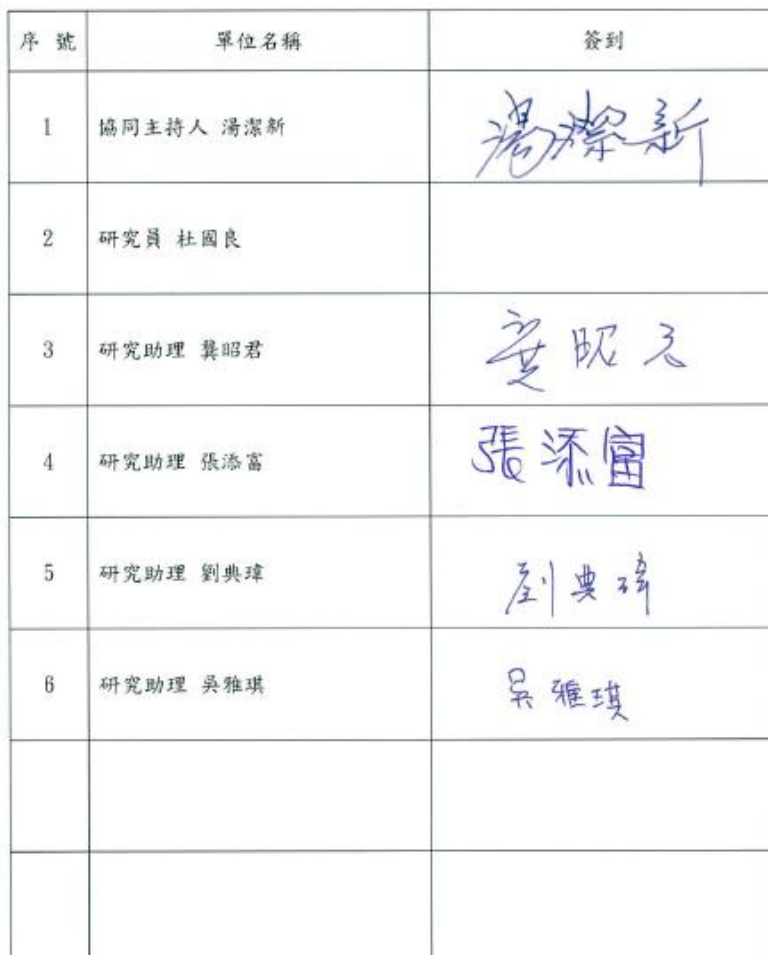 序 號 單位名稱 簽到
1 協同主持人 湯潔新 湯潔新
2 研究員 杜國良
3 研究助理 龔昭君 龔昭君
4 研究助理 張添富 張添富
5 研究助理 劉典瑋 劉典瑋
6 研究助理 吳雅琪 吳雅琪